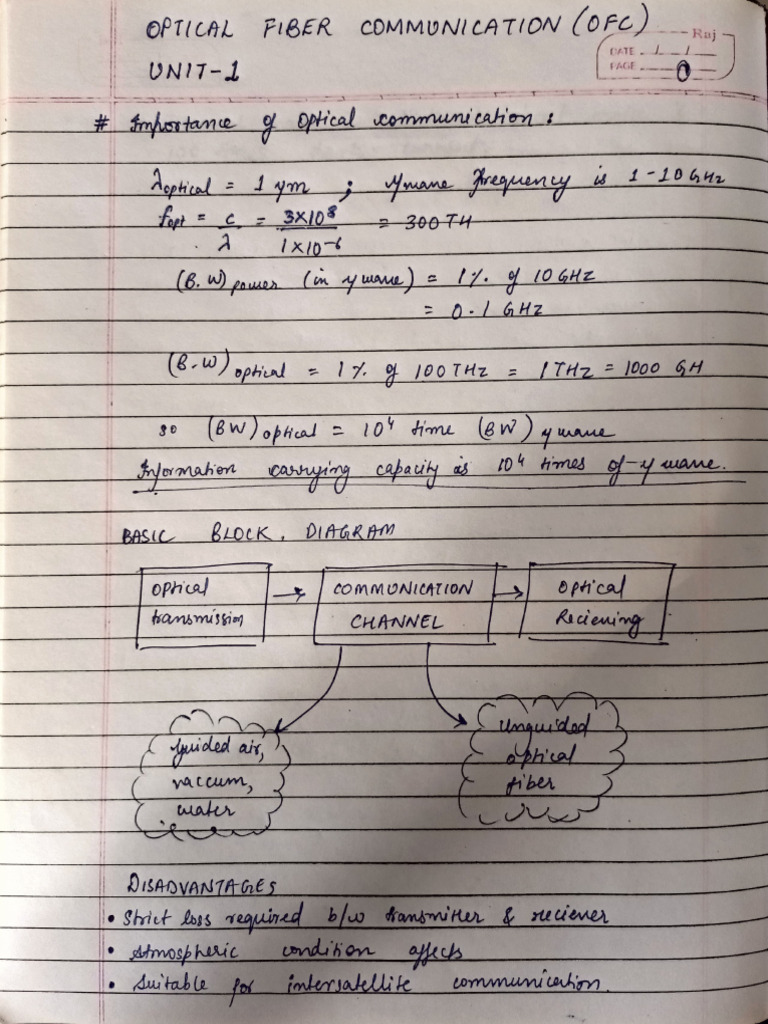 OPTICAL FIBER COMMUNICATION (OFC)
Raj
DATE / /
PAGE 0
UNIT-1
# Importance of Optical communication :
λoptical = 1 μm ; μwave frequency is 1-10 GHz
fopt = c/λ = 3×10⁸/1×10⁻⁶ = 300TH
(B.W)power (in μwave) = 1% of 10 GHz
= 0.1 GHz
(B.W)optical = 1% of 100 THz = 1THz = 1000 GH
so (BW)optical = 10⁴ time (BW)μwave
Information carrying capacity is 10⁴ times of μwave.
BASIC BLOCK. DIAGRAM
Optical transmission → COMMUNICATION CHANNEL → Optical Recieving
guided air,
vaccum,
water
unguided
optical
fiber
DISADVANTAGES
• Strict loss required b/w transmitter & reciever
• Atmospheric condition affects
• Suitable for intersatellite communication.